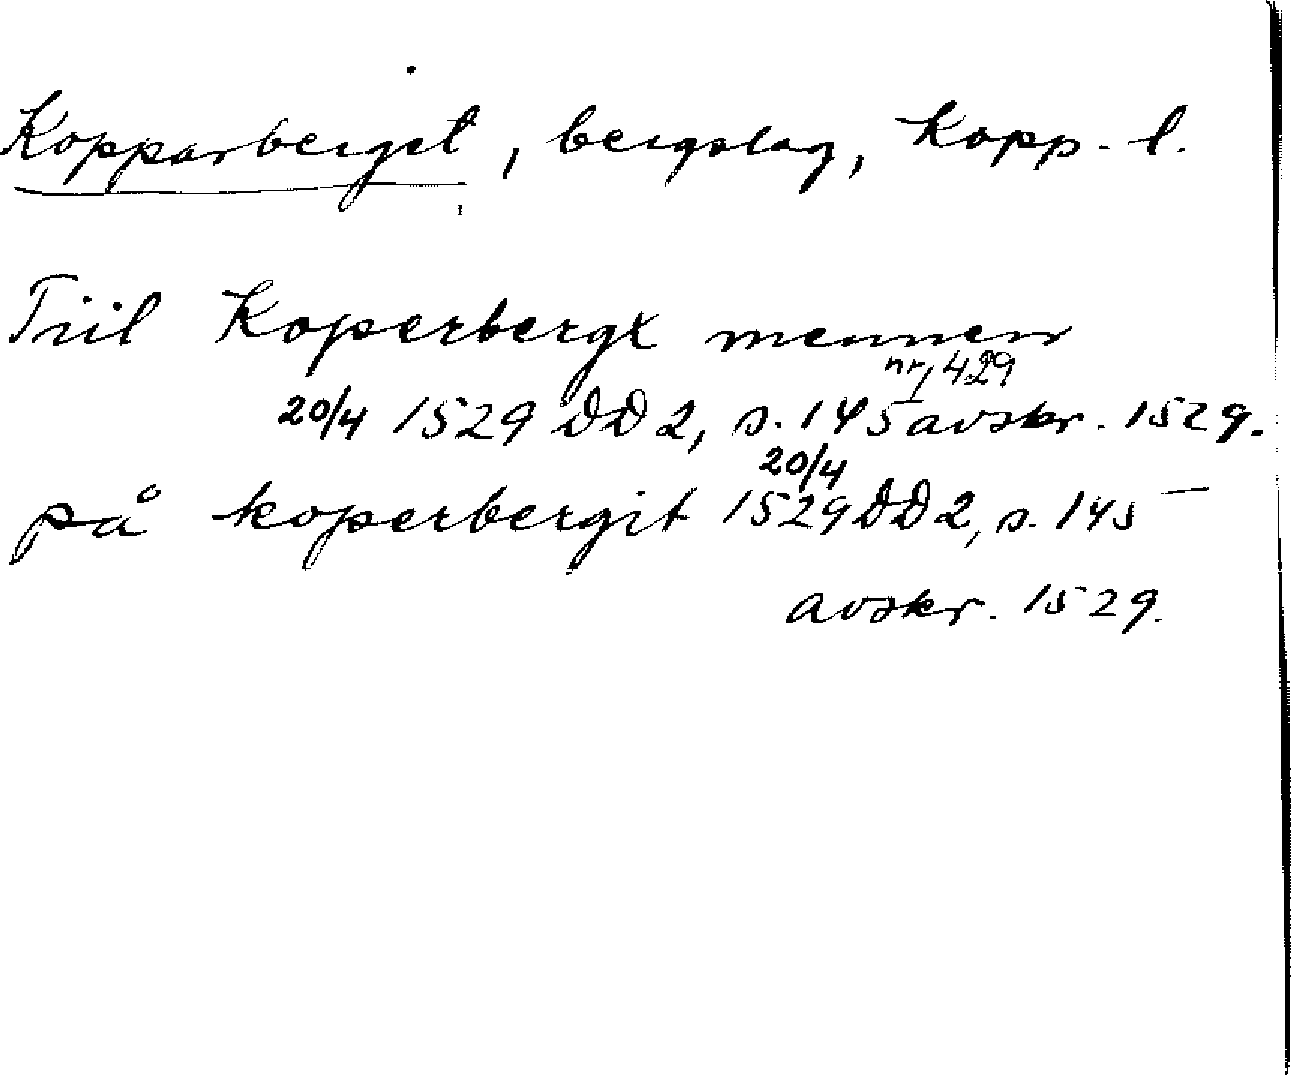 Kopparberget, bergslag, Kopp. l.
Tiil Koperbergx mennen
nr 429
20/4 1529 DD 2, s. 145 avskr. 1529.
20/4
på koperbergit 1529 DD 2, s. 145
avskr. 1529.